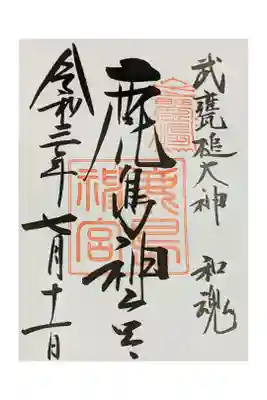 武甕槌大神 和魂
鹿島神宮
鹿島神宮
令和三年七月十一日